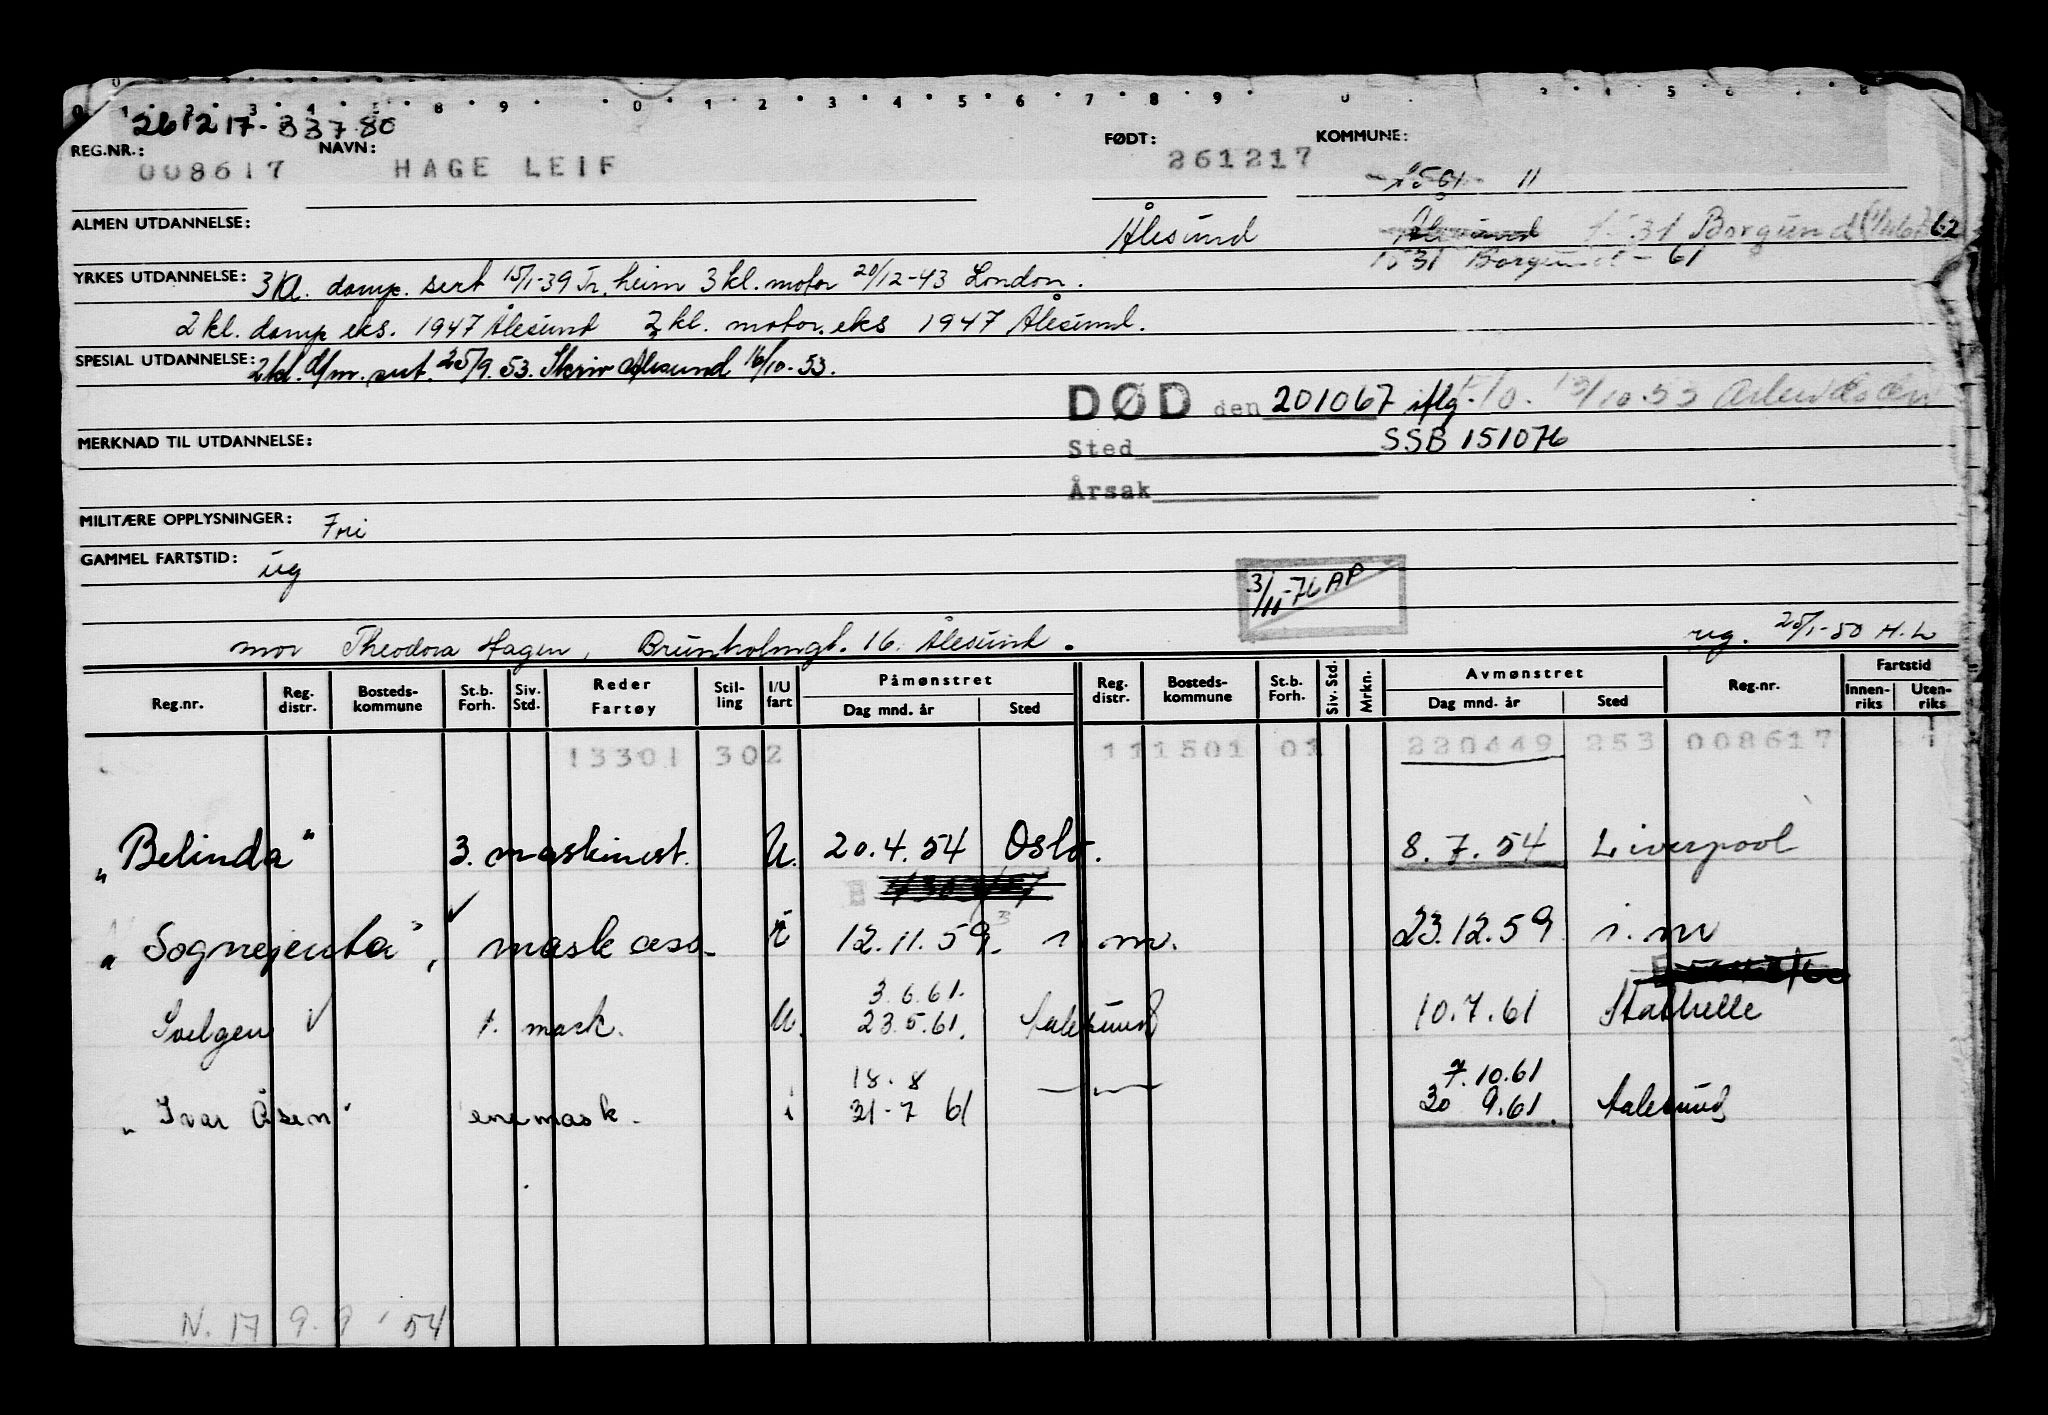 261217-33780
REG.NR.: NAVN: FØDT: KOMMUNE:
008617 HAGE LEIF 261217
11
ALMEN UTDANNELSE: Ålesund Ålesund 1531 Borgund
1531 Borgund - 61
YRKES UTDANNELSE: 3 kl. damp. sert 15/1-39 Tr.heim 3 kl. motor 20/12-43 London.
2 kl. damp eks. 1947 Ålesund 2 kl. motor. eks 1947 Ålesund.
SPESIAL UTDANNELSE: 2 kl. d/m. sert. 25/9.53. Skriv Ålesund 16/10-53.
DØD den 201067 iflg. 13/10-53
MERKNAD TIL UTDANNELSE: Sted SSB 151076
Årsak
MILITÆRE OPPLYSNINGER: Fri
GAMMEL FARTSTID: ug
3/11-76 AP
mor Theodora Hagen, Brunholmgt. 16. Ålesund. reg. 25/1-50 H.L
Reg.nr. Reg. distr. Bosteds-kommune St.b. Forh. Siv. Std. Reder Fartøy Stil-ling I/U fart Påmønstret Dag mnd. år Sted Reg. distr. Bosteds-kommune St.b. Forh. Siv. Std. Mrkn. Avmønstret Dag mnd. år Sted Reg.nr. Fartstid Innen-riks Uten-riks
13301 302 111501 01 220449 253 008617
"Belinda" 3. maskinist. U. 20.4.54 Oslo. 8.7.54 Liverpool
"Sognejenta", mask ass. 12.11.59. i.m. 23.12.59 i.m
3.6.61.
Svelgen 1. mask. U. 23.5.61. Aalesund 10.7.61 Stathelle
18.8 7.10.61
"Ivar Åsen" enemask. i 31-7 61 30 9.61. Aalesund
N. 17 9. 54